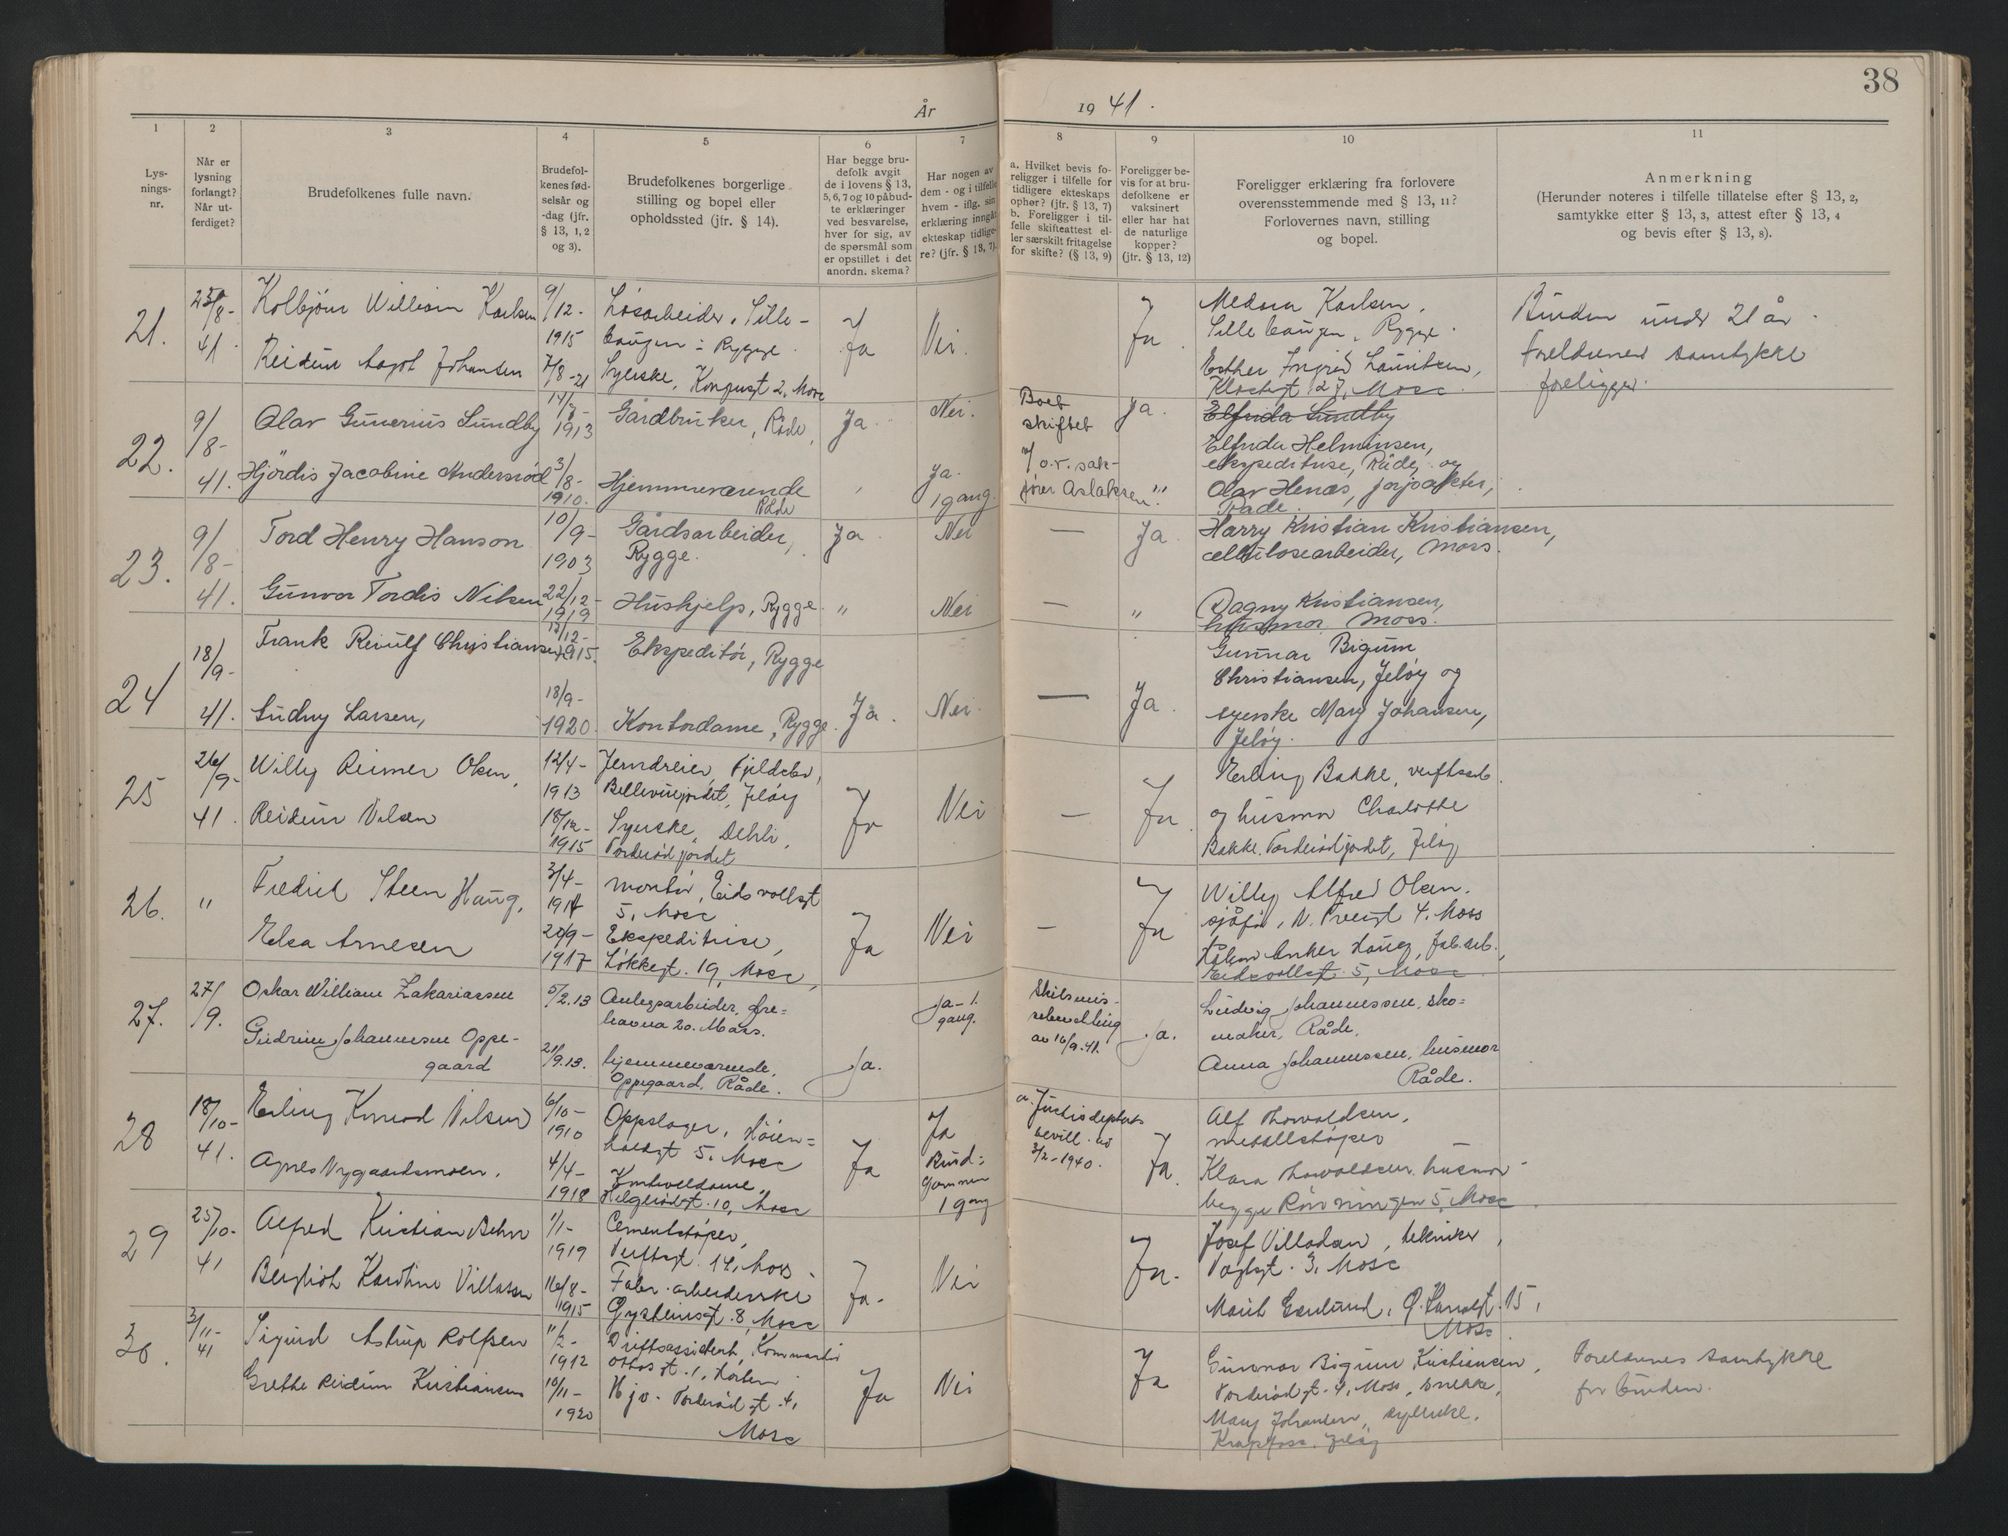 38
År
19 41.
1
2
3
4
5
6
7
8
9
10
11
Lys-
nings-
nr.
Når er
lysning
forlangt?
Når ut-
ferdiget?
Brudefolkenes fulle navn.
Brudefol-
kenes fød-
selsår og
-dag (jfr.
§ 13, 1, 2
og 3).
Brudefolkenes borgerlige
stilling og bopel eller
opholdssted (jfr. § 14).
Har begge bru-
defolk avgit
de i lovens § 13,
5, 6, 7 og 10 påbud-
te erklæringer
ved besvarelse,
hver for sig, av
de spørsmål som
er opstillet i det
anordn. skema?
Har nogen av
dem - og i tilfelle
hvem - iflg. sin
erklæring inngått
ekteskap tidlige-
re? (jfr. § 13, 7).
a. Hvilket bevis fo-
religger i tilfelle for
tidligere ekteskaps
ophør? (jfr. § 13, 7)
b. Foreligger i til-
felle skifteattest el-
ler særskilt fritagelse
for skifte? (§ 13, 9)
Foreligger be-
vis for at bru-
defolkene er
vaksinert
eller har hat
de naturlige
kopper?
(jfr. § 13, 12)
Foreligger erklæring fra forlovere
overensstemmende med § 13, 11?
Forlovernes navn, stilling
og bopel.
Anmerkning
(Herunder noteres i tilfelle tillatelse efter § 13, 2,
samtykke efter § 13, 3, attest efter § 13, 4
og bevis efter § 13, 8).
21.
25/8-
41.
Kolbjörn William Karlsen
Reidun Aagot Johansen
9/12-
1915
7/8-21
Løsarbeider, Sille-
baugen i Rygge.
Syerske, Kongensgt 2, Moss
Ja
Nei.
Ja
Medora Karlsen,
Sillebaugen, Rygge.
Esther Ingrid Lauritsen,
Klostergt 27, Moss.
Bruden under 21 år.
Foreldrenes samtykke
foreligger.
22.
9/8-
41.
Olav Gunerius Sundby
Hjördis Jacobine Andersröd
1913
3/8-
1910.
Gårdbruker, Råde,
Hjemmeværende
Råde
Ja.
Nei.
Ja.
1 gang.
Boet
skiftet
v/ o.r. sak-
fører Aslaksen
Ja.
"
Elfrida Sundby
Elfrida Helminsen,
ekspeditrise, Råde, og
Olav Henæs, forpakter,
Råde.
23.
9/8-
41.
Tord Henry Hanson
Gunvor Tordis Nilsen
10/9-
1903
22/12-
1919
Gårdsarbeider,
Rygge.
Hushjelp, Rygge.
Ja.
"
Nei
Nei
—
—
Ja.
"
Harry Kristian Kristiansen,
cellulosearbeider, Moss.
Dagny Kristiansen,
husmor, Moss.
24
18/9-
41.
Frank Reiulf Christiansen
Gudny Larsen,
12/12-
1915.
18/9-
1920.
Ekspeditör, Rygge
Kontordame, Rygge
Ja.
Nei.
—
Ja.
Gunnar Bigum
Christiansen, Jeløy og
syerske Mary Johansen,
Jeløy.
25
26/9-
41.
Willy Reimer Olsen,
Reidun Nilsen
12/4-
1913
18/12-
1915
Jerndreier, Fjeldebo,
Bellevuejordet, Jeløy
Syerske, Dehli,
Torderødjordet
Ja
Nei
—
Ja.
Erling Bakke, verftsarb.
og husmor Charlotte
Bakke, Torderødjordet, Jeløy
26.
"
Fredrik Steen Haug,
Elsa Arnesen
3/4-
1917
20/9-
1917
Montør, Eidsvollsgt
5, Moss
Ekspeditrise,
Løkkegt. 19, Moss,
Ja
Nei
—
Ja
Willy Alfred Olsen,
sjåfør, N. Trengt 4. Moss
Håkon Anker Haug, fab.arb.,
Eidsvollsgt. 5, Moss.
27.
27/9.
Oskar William Zakariassen
Gudrun Johannessen Oppe-
gaard
5/2.13
21/9.13.
Anlegsarbeider, Ore-
havna 20. Moss.
hjemmeværende,
Oppegaard, Råde.
Ja.
Ja - 1.
gang.
Skilsmis-
sebevilling
av 16/9.41.
Ja.
Ludvig Johannessen, sko-
maker, Råde.
Anna Johannessen, husmor
Råde.
28
18/10-
41.
Erling Konrad Nilsen
Agnes Nygaardsmoen.
6/10-
1910
4/4-
1918
Oppslager, Höien-
haldgt 5, Moss
Kontrolldame,
Helgerødgt. 10, Moss
Ja
Ja
Brud-
gommen
1 gang
a. Justisdeptets
bevill. av
3/2-1940.
Ja.
Alf Thorvaldsen,
metallstøper
Klara Thorvaldsen, husmor
begge Rönningen 5, Moss
29
25/10-
41
Alfred Kristian Behn
Bergliot Karoline Villassen
1/1-
1919
16/8-
1915
Cementstøper,
Verftsgt. 14, Moss
Fabr. arbeiderske
Gystemsgt. 8, Moss
Ja.
Nei
Ja.
Josef Villadsen, tekniker,
Vaglsgt. 3, Moss
Marit Enlund, Ø. Kanalgt. 15,
Moss.
30.
3/11-
41
Sigurd Astrup Rolfsen
Grethe Reidun Kristiansen
11/2-
1912
10/11-
1920
Driftsassistent, Kommandør
Ottos gt. 1, Horten
Hjv. Torderødgt. 4,
Moss
Ja
Nei
Ja
Gunnar Bigum Kristiansen,
Torderødgt. 4, Moss, snekker,
Mary Johansen, syerske,
Krapfoss, Jeløy
Foreldrenes samtykke
for bruden.